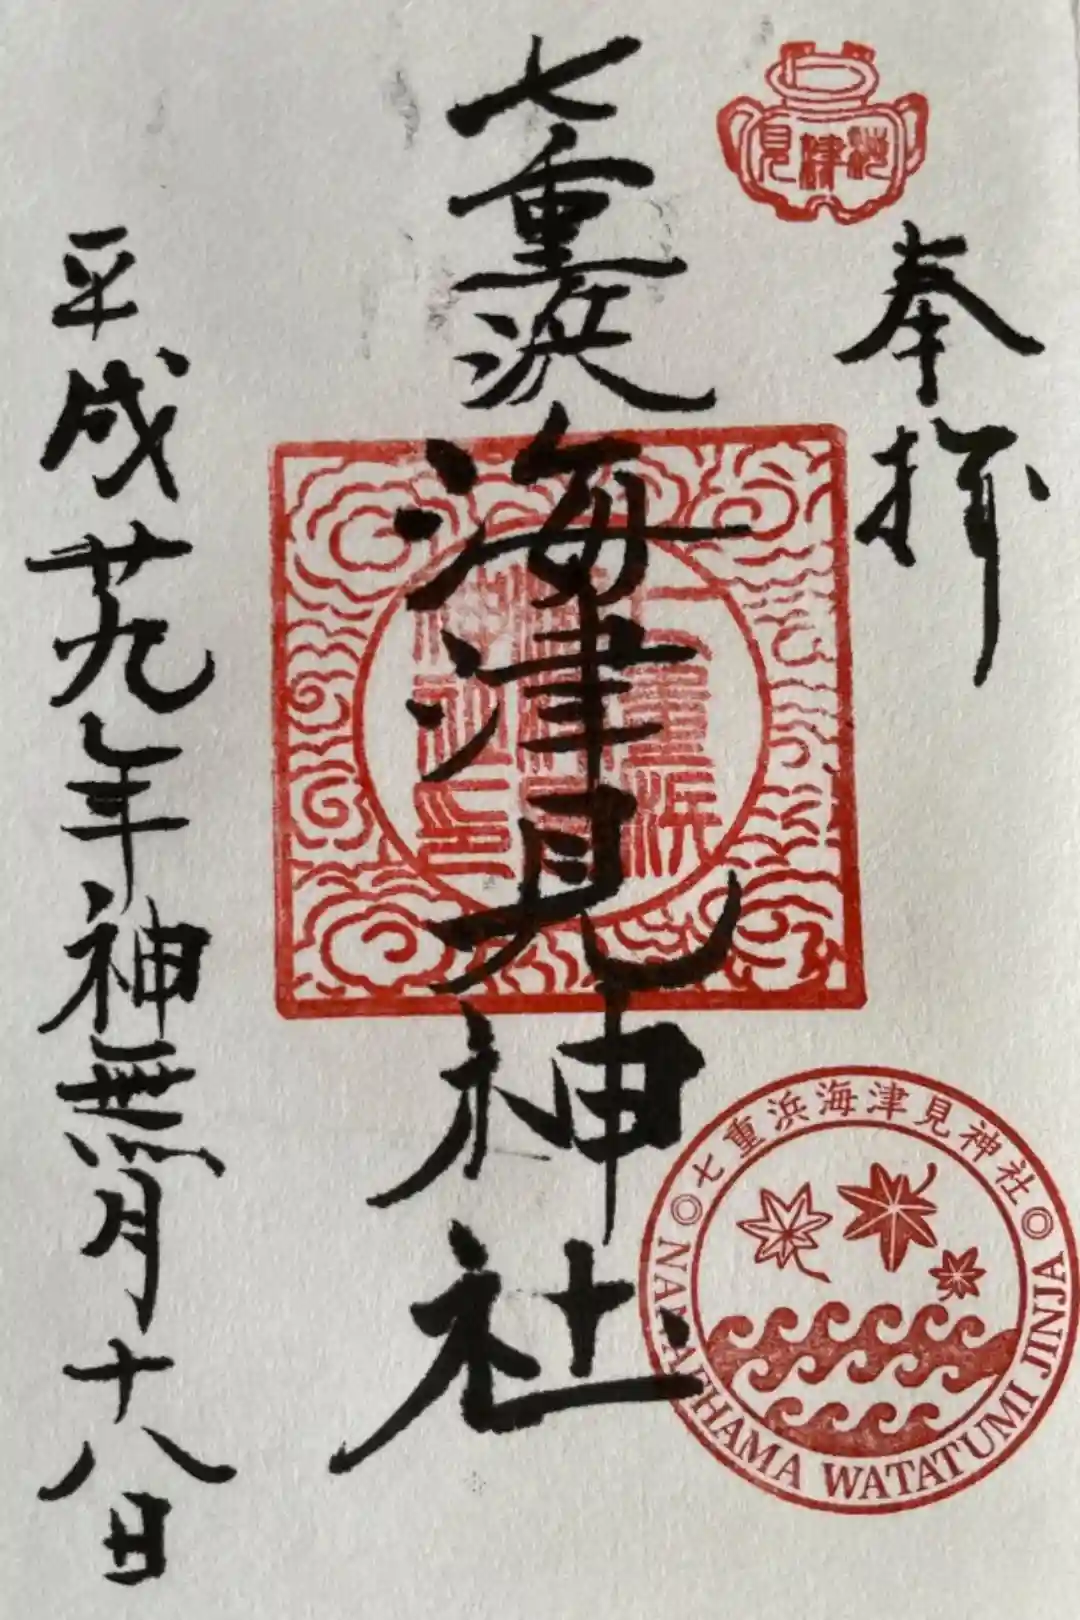 海津見
奉拝
七重浜海津見神社
七重浜
平成廿九年神無月十八日
七重浜海津見神社
NANAEHAMA WATATUMI JINJA